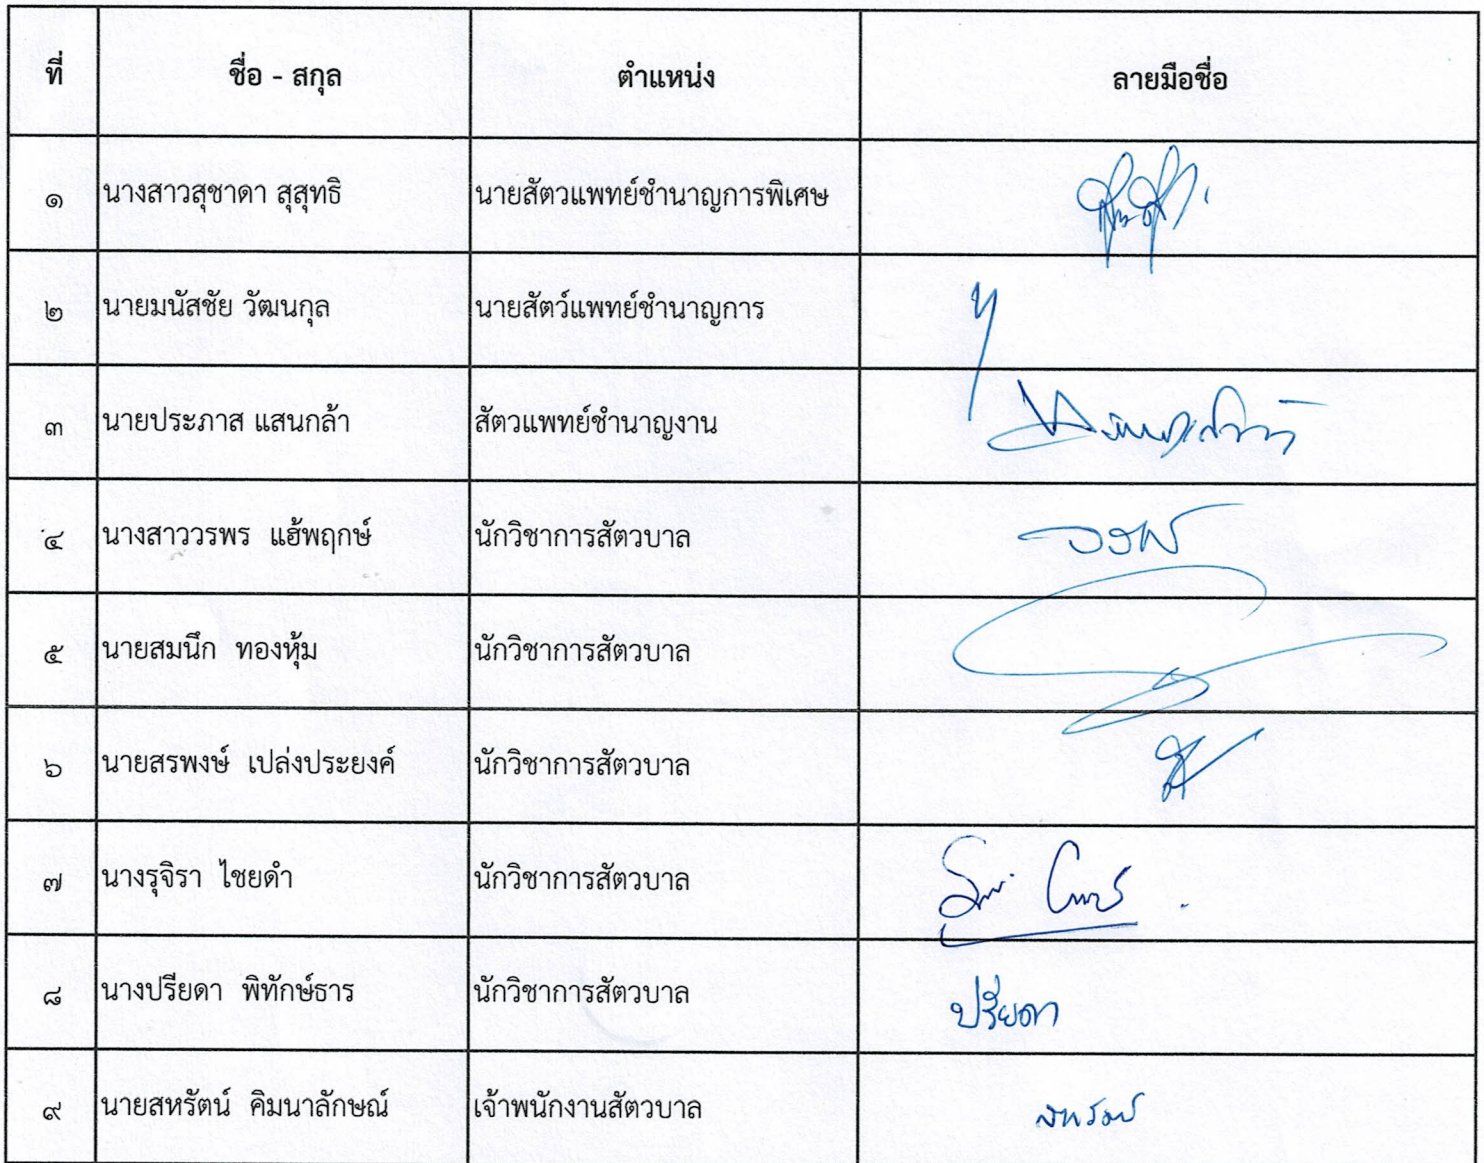 ที่ ชื่อ - สกุล ตำแหน่ง ลายมือชื่อ
๑ นางสาวสุชาดา สุสุทธิ นายสัตวแพทย์ชำนาญการพิเศษ
๒ นายมนัสชัย วัฒนกุล นายสัตว์แพทย์ชำนาญการ
๓ นายประภาส แสนกล้า สัตวแพทย์ชำนาญงาน
๔ นางสาววรพร แฮ้พฤกษ์ นักวิชาการสัตวบาล
๕ นายสมนึก ทองหุ้ม นักวิชาการสัตวบาล
๖ นายสรพงษ์ เปล่งประยงค์ นักวิชาการสัตวบาล
๗ นางรุจิรา ไชยดำ นักวิชาการสัตวบาล
๘ นางปรียดา พิทักษ์ธาร นักวิชาการสัตวบาล ปรียดา
๙ นายสหรัตน์ คิมนาลักษณ์ เจ้าพนักงานสัตวบาล สหรัตน์